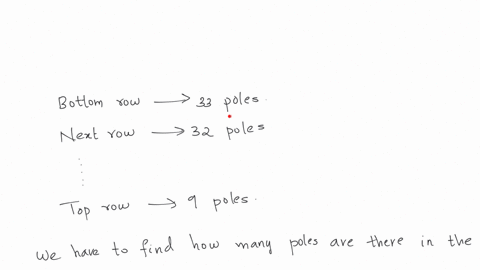 Bottom row → 33 poles.
Next row → 32 poles
Top row → 9 poles.
We have to find how many poles are there in the